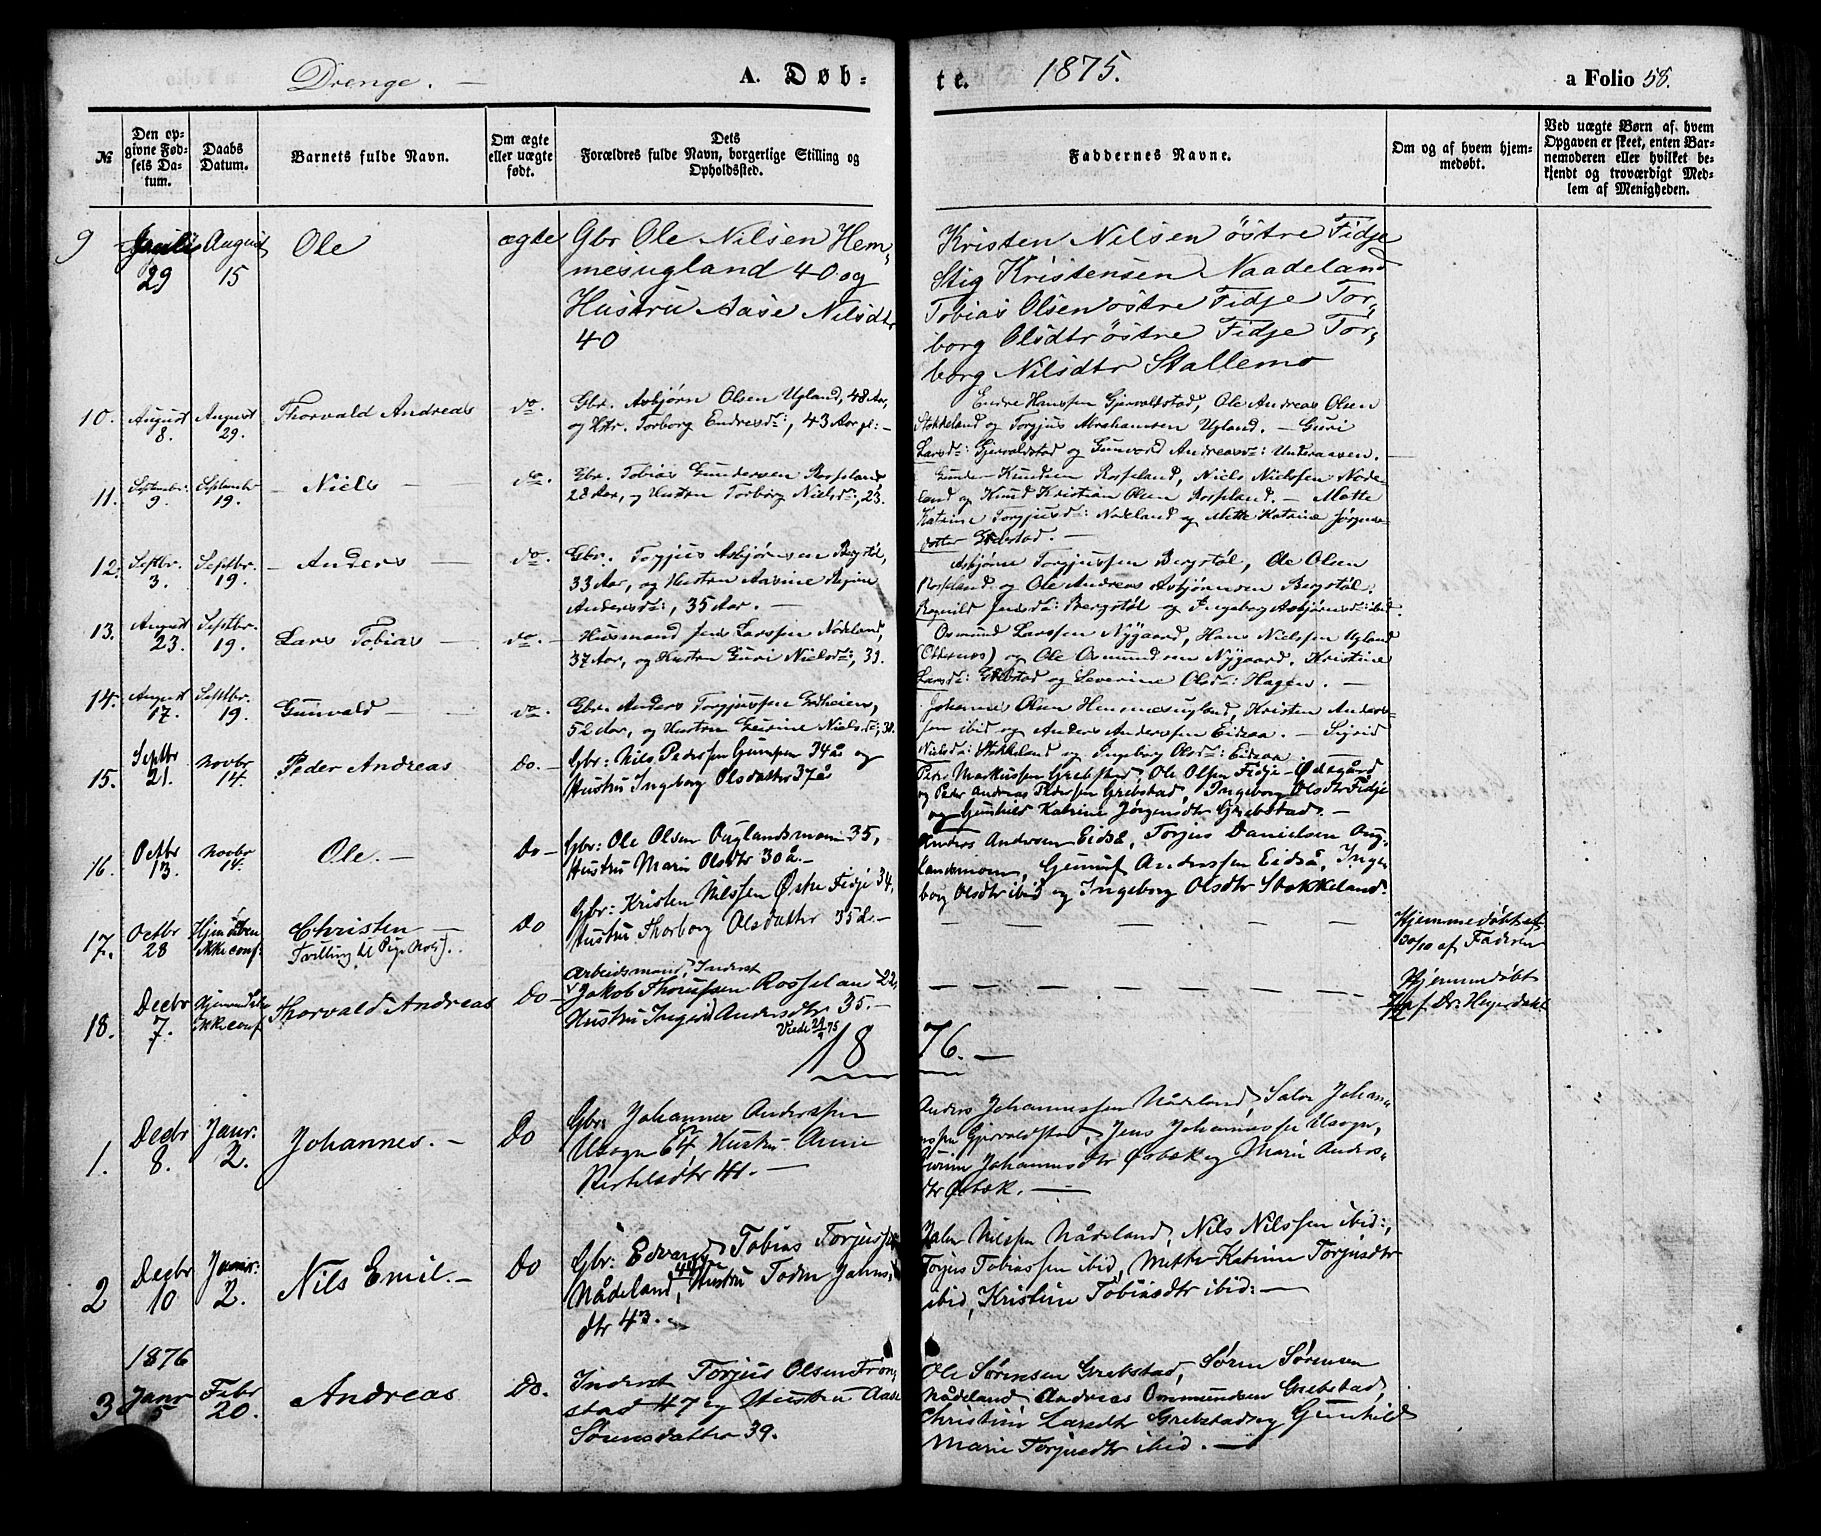 Drenge. — A. Døb- te. 1875. a Folio 58.
№
Den op-
givne Fød-
sels Da-
tum.
Daabs
Datum.
Barnets fulde Navn.
Om ægte
eller uægte
født.
Dets
Forældres fulde Navn, borgerlige Stilling og
Opholdssted.
Faddernes Navne.
Om og af hvem hjem-
medøbt.
Ved uægte Børn af hvem
Opgaven er skeet, enten Bar-
nemoderen eller hvilket be-
kjendt og troværdigt Med-
lem af Menigheden.
9 Juli 29 August 15 Ole ægte
Gbr Ole Nilsen Hem-
mesugland 40 og
Hustru Aase Nilsdtr
40
Kristen Nilsen östre Fidje
Stig Kristensen Naadeland
Tobias Olsen östre Fidje Tor-
borg Olsdtr östre Fidje Tor-
borg Nilsdtr Stallemo
10. August 8. August 29. Thorvald Andreas do.
Gbr. Asbjørn Olsen Ugland, 48 Aar,
og Hstr. Torborg Endresd:, 43 Aar gl: —
Endre Hansen Gjervaldstad, Ole Andreas Olsen
Stokkeland og Torgjus Abrahamsen Ugland. — Guri
Larsd: Gjervaldstad og Gunvord Andreasd: Underaasen.
11. Septembr: 9. Septembr 19. — Niels — do.
Gbr. Tobias Gundersen Rosseland,
28 Aar, og Hustru Torborg Nielsd:, 23.
Gunder Knudsen Rosseland, Niels Nielssen Node-
land og Knud Kristian Olsen Rosseland. — Mette
Katrine Torgjusd: Nodeland og Mette Katrine Jørgens-
datter Grebstad. —
12. Septbr. 3. Septbr. 19. — Anders — do.
Gbr. Torgjus Asbjørnsen Bergstøl,
33 Aar, og Hustru Aasine Regine
Andersd:, 35 Aar. —
Asbjørn Torgjussen Bergstøl, Ole Olsen
Rosseland og Ole Andreas Asbjørnsen Bergstøl.
Ragnild Jensd: Bergstøl og Ingeborg Asbjørnsd: ibid.
13. August 23. Septbr. 19. Lars Tobias — do. —
Husmand Jens Larssen Nodeland,
37 Aar, og Hustru Guri Nielsd:, 39.
Osmund Larssen Nygaard, Hans Nielssen Ugland
(Oddernes) og Ole Osmundsen Nygaard. Kristine
Larsd: Grebstad og Severine Olsd: Hagen. —
14. August 17. Septbr. 19. Gunvald — do. —
Gbr. Anders Torgjussen Eidheien,
52 Aar, og Hustru Gurine Nielsd:, 38.
Johannes Olsen Hemmesugland, Kristen Anders-
sen ibid og Anders Anderssen Eidsaa. — Sigrid
Nielsd: Stokkeland og Ingeborg Olsd: Eidsaa
15. Septbr 21. Novbr 14. Peder Andreas Do. —
Gbr: Nils Pedersen Gumpen 34 år og
Hustru Ingeborg Olsdatter 37 å
Peder Markussen Grebstad, Ole Olsen Fidje-Ødegård
og Peder Andreas Pedersen Grebstad, Ingeborg Olsdtr Fidje
og Gunhild Katrine Jørgensdtr Grebstad. —
16. Octbr 13. Novbr 14. Ole. — Do —
Gbr: Ole Olsen Auglandsmoen 35,
Hustru Marie Olsdtr 30 å. —
Anders Andersen Eidså, Torjus Danielsen Aug-
landsmoen, Gunuf Anderssen Eidså, Inge-
borg Olsdtr ibid og Ingeborg Olsdtr Stokkeland.
17. Octbr 28 Hjemdøbt ikke conf. Christen — Do
Tvilling til Pige No
Gbr: Kristen Nilssen Østre Fidje 34,
Hustru Thorborg Olsdatter 35 å. —
Hjemmedøbt
30/10 af Faderen
18. Decbr 7. Hjemmedøbt ikke conf Thorvald Andreas Do —
Arbeidsmand, Inderst
Jakob Thorsen Rosseland 22,
Hustru Ingerid Andersdtr 35. —
Viede 75
Hjemmedøbt
af Dr: Heyerdahl
18 76. —
1. Decbr 8. Janr. 2. Johannes. — Do
Gbr: Johannes Andersen
Usogn 64, Hustru Anne
Kirkelsdtr 41. —
Anders Johannessen Nådeland, Salve Johan-
nessen Gjervaldstad, Jens Johannessen Usogn,
Johannesdtr Øvbø og Marie Anders-
dtr Øvbø. —
2 Decbr 10 Janr. 2. Nils Emil. — Do
Gbr: Edvard Tobias Torjussen
Nådeland, 40 Hustru Johns-
dtr 43. —
Salve Nilsen Nådeland, Nils Nilssen ibid:,
Torjus Tobiassen ibid, Mette Katrine Torjusdtr
ibid, Kristine Tobiasdtr ibid: —
1876
3 Janr 5 Febr 20. Andreas Do.
Inderst Torjus Olsen Tron-
stad 47 og Hustru Aase
Sørensdatter 39.
Ole Sørensen Grebstad, Søren Sørensen
Nådeland, Andreas Ommundsen Grebstad,
Christine Larsdtr Grebstad og Gunhild
Marie Torjusdtr ibid. —